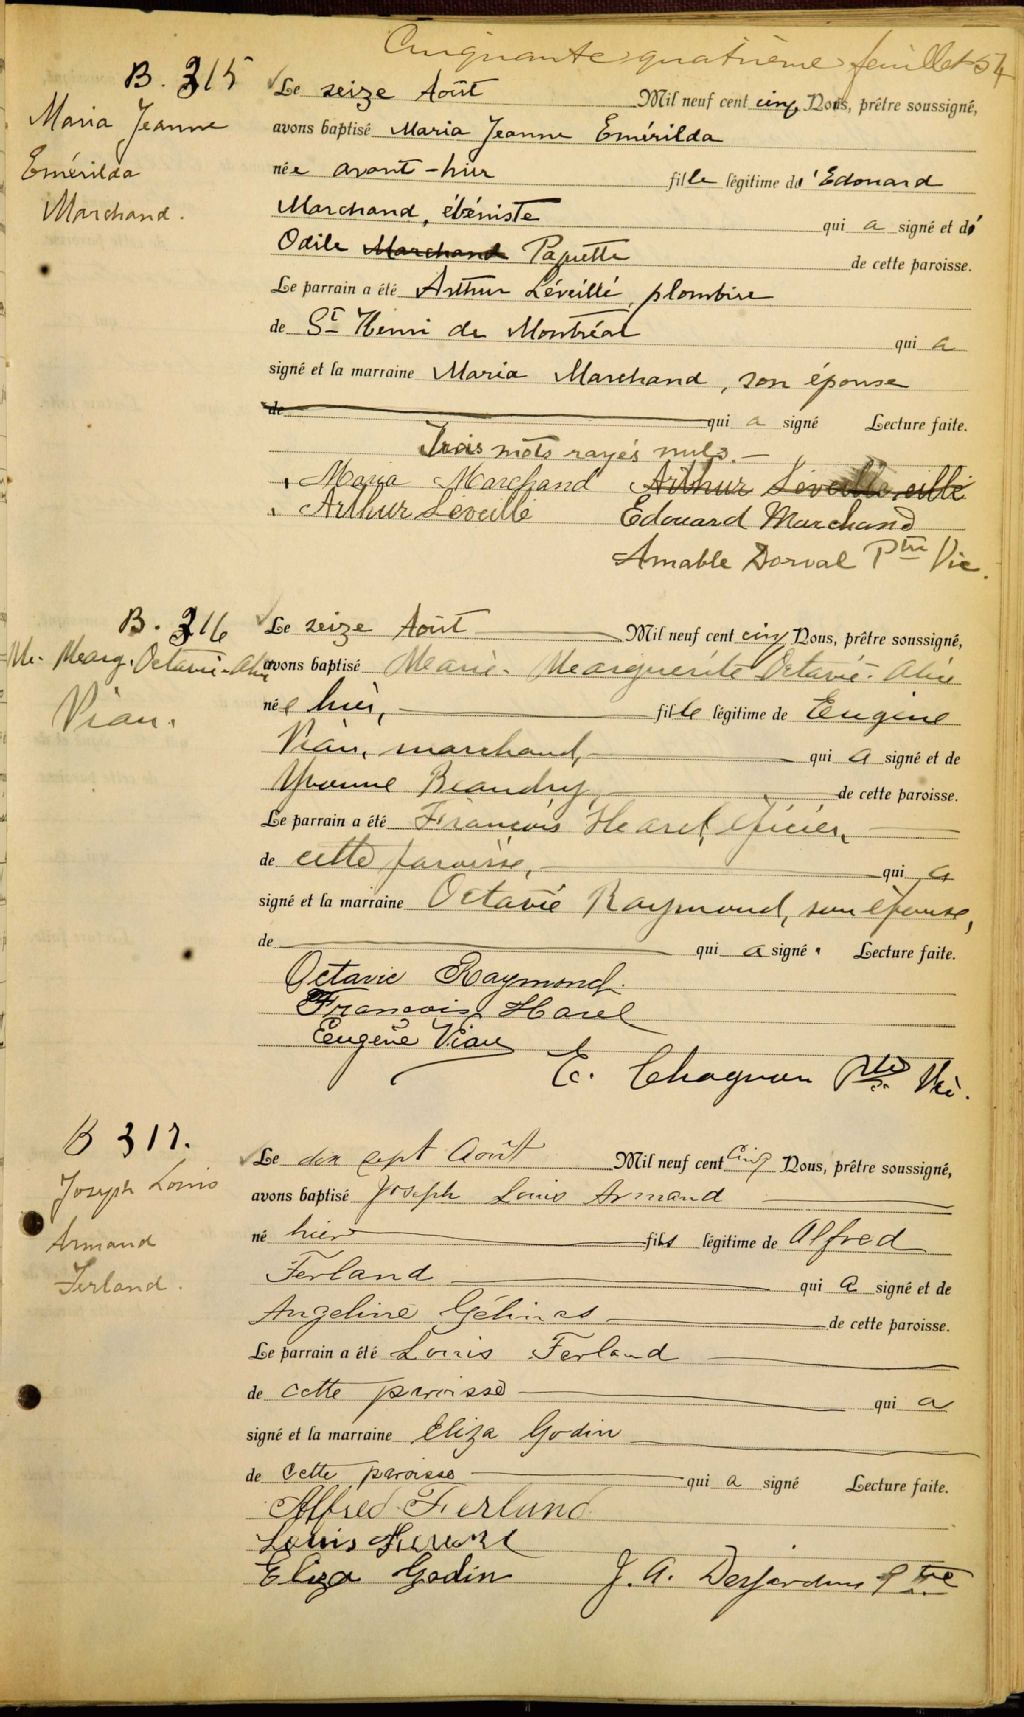 Cinquante-quatrième feuillet 54
B. 315
Maria Jeanne
Emérilda
Marchand.
Le seize Août Mil neuf cent cinq Nous, prêtre soussigné,
avons baptisé Maria Jeanne Emérilda
née avant-hier fille légitime d'Edouard
Marchand, ébéniste qui a signé et d'
Odile Marchand Paquette de cette paroisse.
Le parrain a été Arthur Léveillé, plombier
de St Henri de Montréal qui a
signé et la marraine Maria Marchand, son épouse
de qui a signé Lecture faite.
Trois mots rayés nuls.—
Maria Marchand Arthur Leveille eillé
Arthur Leveille Edouard Marchand
Amable Dorval Ptre Vic.
B. 316
M. Marg. Octavie-Alice
Viau.
Le seize Août Mil neuf cent cinq Nous, prêtre soussigné,
avons baptisé Marie-Marguerite Octavie-Alice
née hier, fille légitime de Eugène
Viau, marchand, qui a signé et de
Yvonne Beaudry, de cette paroisse.
Le parrain a été François Harel, épicier,
de cette paroisse, qui a
signé et la marraine Octavie Raymond, son épouse,
de qui a signé. Lecture faite.
Octavie Raymond
François Harel
Eugène Viau
E. Chagnon Ptre Vic.
B 317.
Joseph Louis
Armand
Ferland.
Le dix sept Août Mil neuf cent cinq Nous, prêtre soussigné,
avons baptisé Joseph Louis Armand
né hier fils légitime de Alfred
Ferland qui a signé et de
Angeline Gélinas de cette paroisse.
Le parrain a été Louis Ferland
de cette paroisse qui a
signé et la marraine Eliza Godin
de cette paroisse qui a signé Lecture faite.
Alfred Ferland
Louis
Eliza Godin J. A. Desjardins Ptre